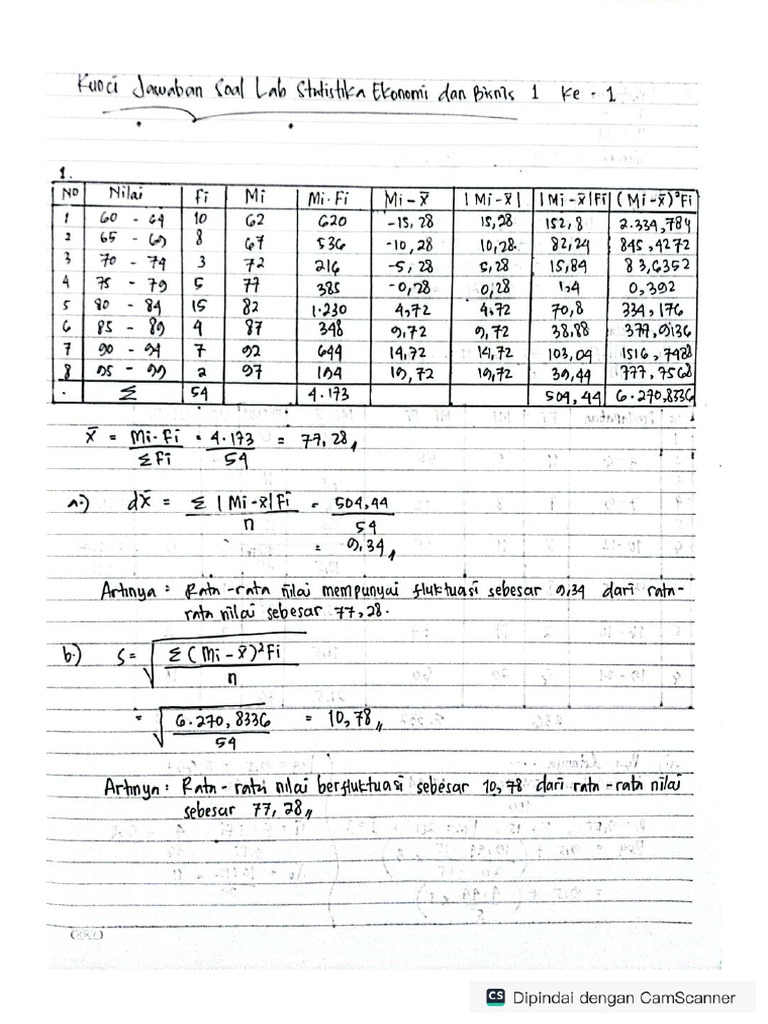 Kunci Jawaban Soal Lab Statistika Ekonomi dan Bisnis 1 Ke - 1
1.
No Nilai Fi Mi Mi.Fi Mi-x̄ |Mi-x̄| |Mi-x̄|Fi (Mi-x̄)²Fi
1 60 - 64 10 62 620 -15,28 15,28 152,8 2.334,784
2 65 - 69 8 67 536 -10,28 10,28 82,24 845,4272
3 70 - 74 3 72 216 -5,28 5,28 15,84 83,6352
4 75 - 79 5 77 385 -0,28 0,28 1,4 0,392
5 80 - 84 15 82 1.230 4,72 4,72 70,8 334,176
6 85 - 89 4 87 348 9,72 9,72 38,88 377,9136
7 90 - 94 7 92 644 14,72 14,72 103,04 1516,7488
8 95 - 99 2 97 194 19,72 19,72 39,44 777,7568
. Σ 54 4.173 504,44 6.270,8336
x̄ = Mi.Fi = 4.173 = 77,28,,
ΣFi 54
a.) dx̄ = Σ|Mi-x̄|Fi = 504,44
n 54
= 9,34,,
Artinya : Rata-rata nilai mempunyai fluktuasi sebesar 9,34 dari rata-
rata nilai sebesar 77,28.
b.) S = √ Σ(Mi-x̄)²Fi
n
= √ 6.270,8336 = 10,78,,
54
Artinya : Rata-rata nilai berfluktuasi sebesar 10,78 dari rata-rata nilai
sebesar 77,28,,
CS Dipindai dengan CamScanner